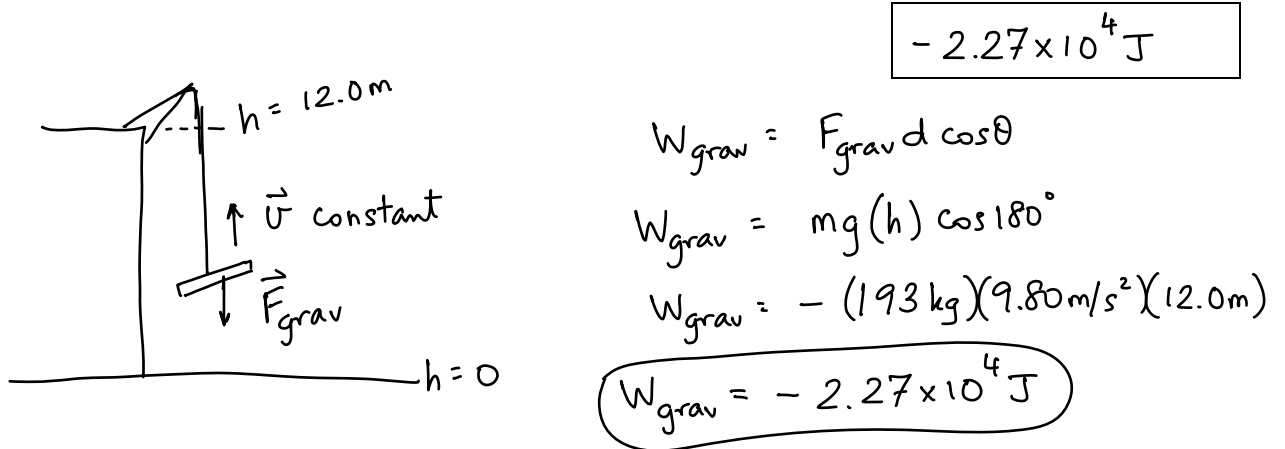 - 2.27 x 10⁴ J
h = 12.0 m
v⃗ constant
F⃗grav
h = 0
Wgrav = Fgrav d cosθ
Wgrav = mg(h) cos 180°
Wgrav = - (193 kg)(9.80 m/s²)(12.0m)
Wgrav = - 2.27 x 10⁴ J